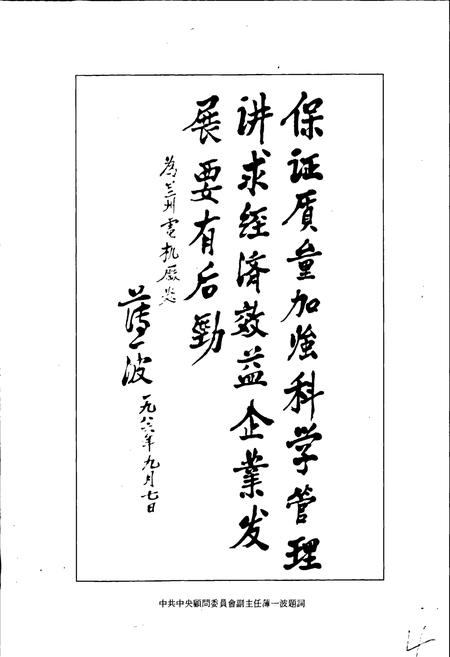 保证质量加強科学管理
讲求经济效益企業发
展要有后勁
为兰州電机厰题
薄一波
一九八六年九月七日
中共中央顧問委員會副主任薄一波題詞
4